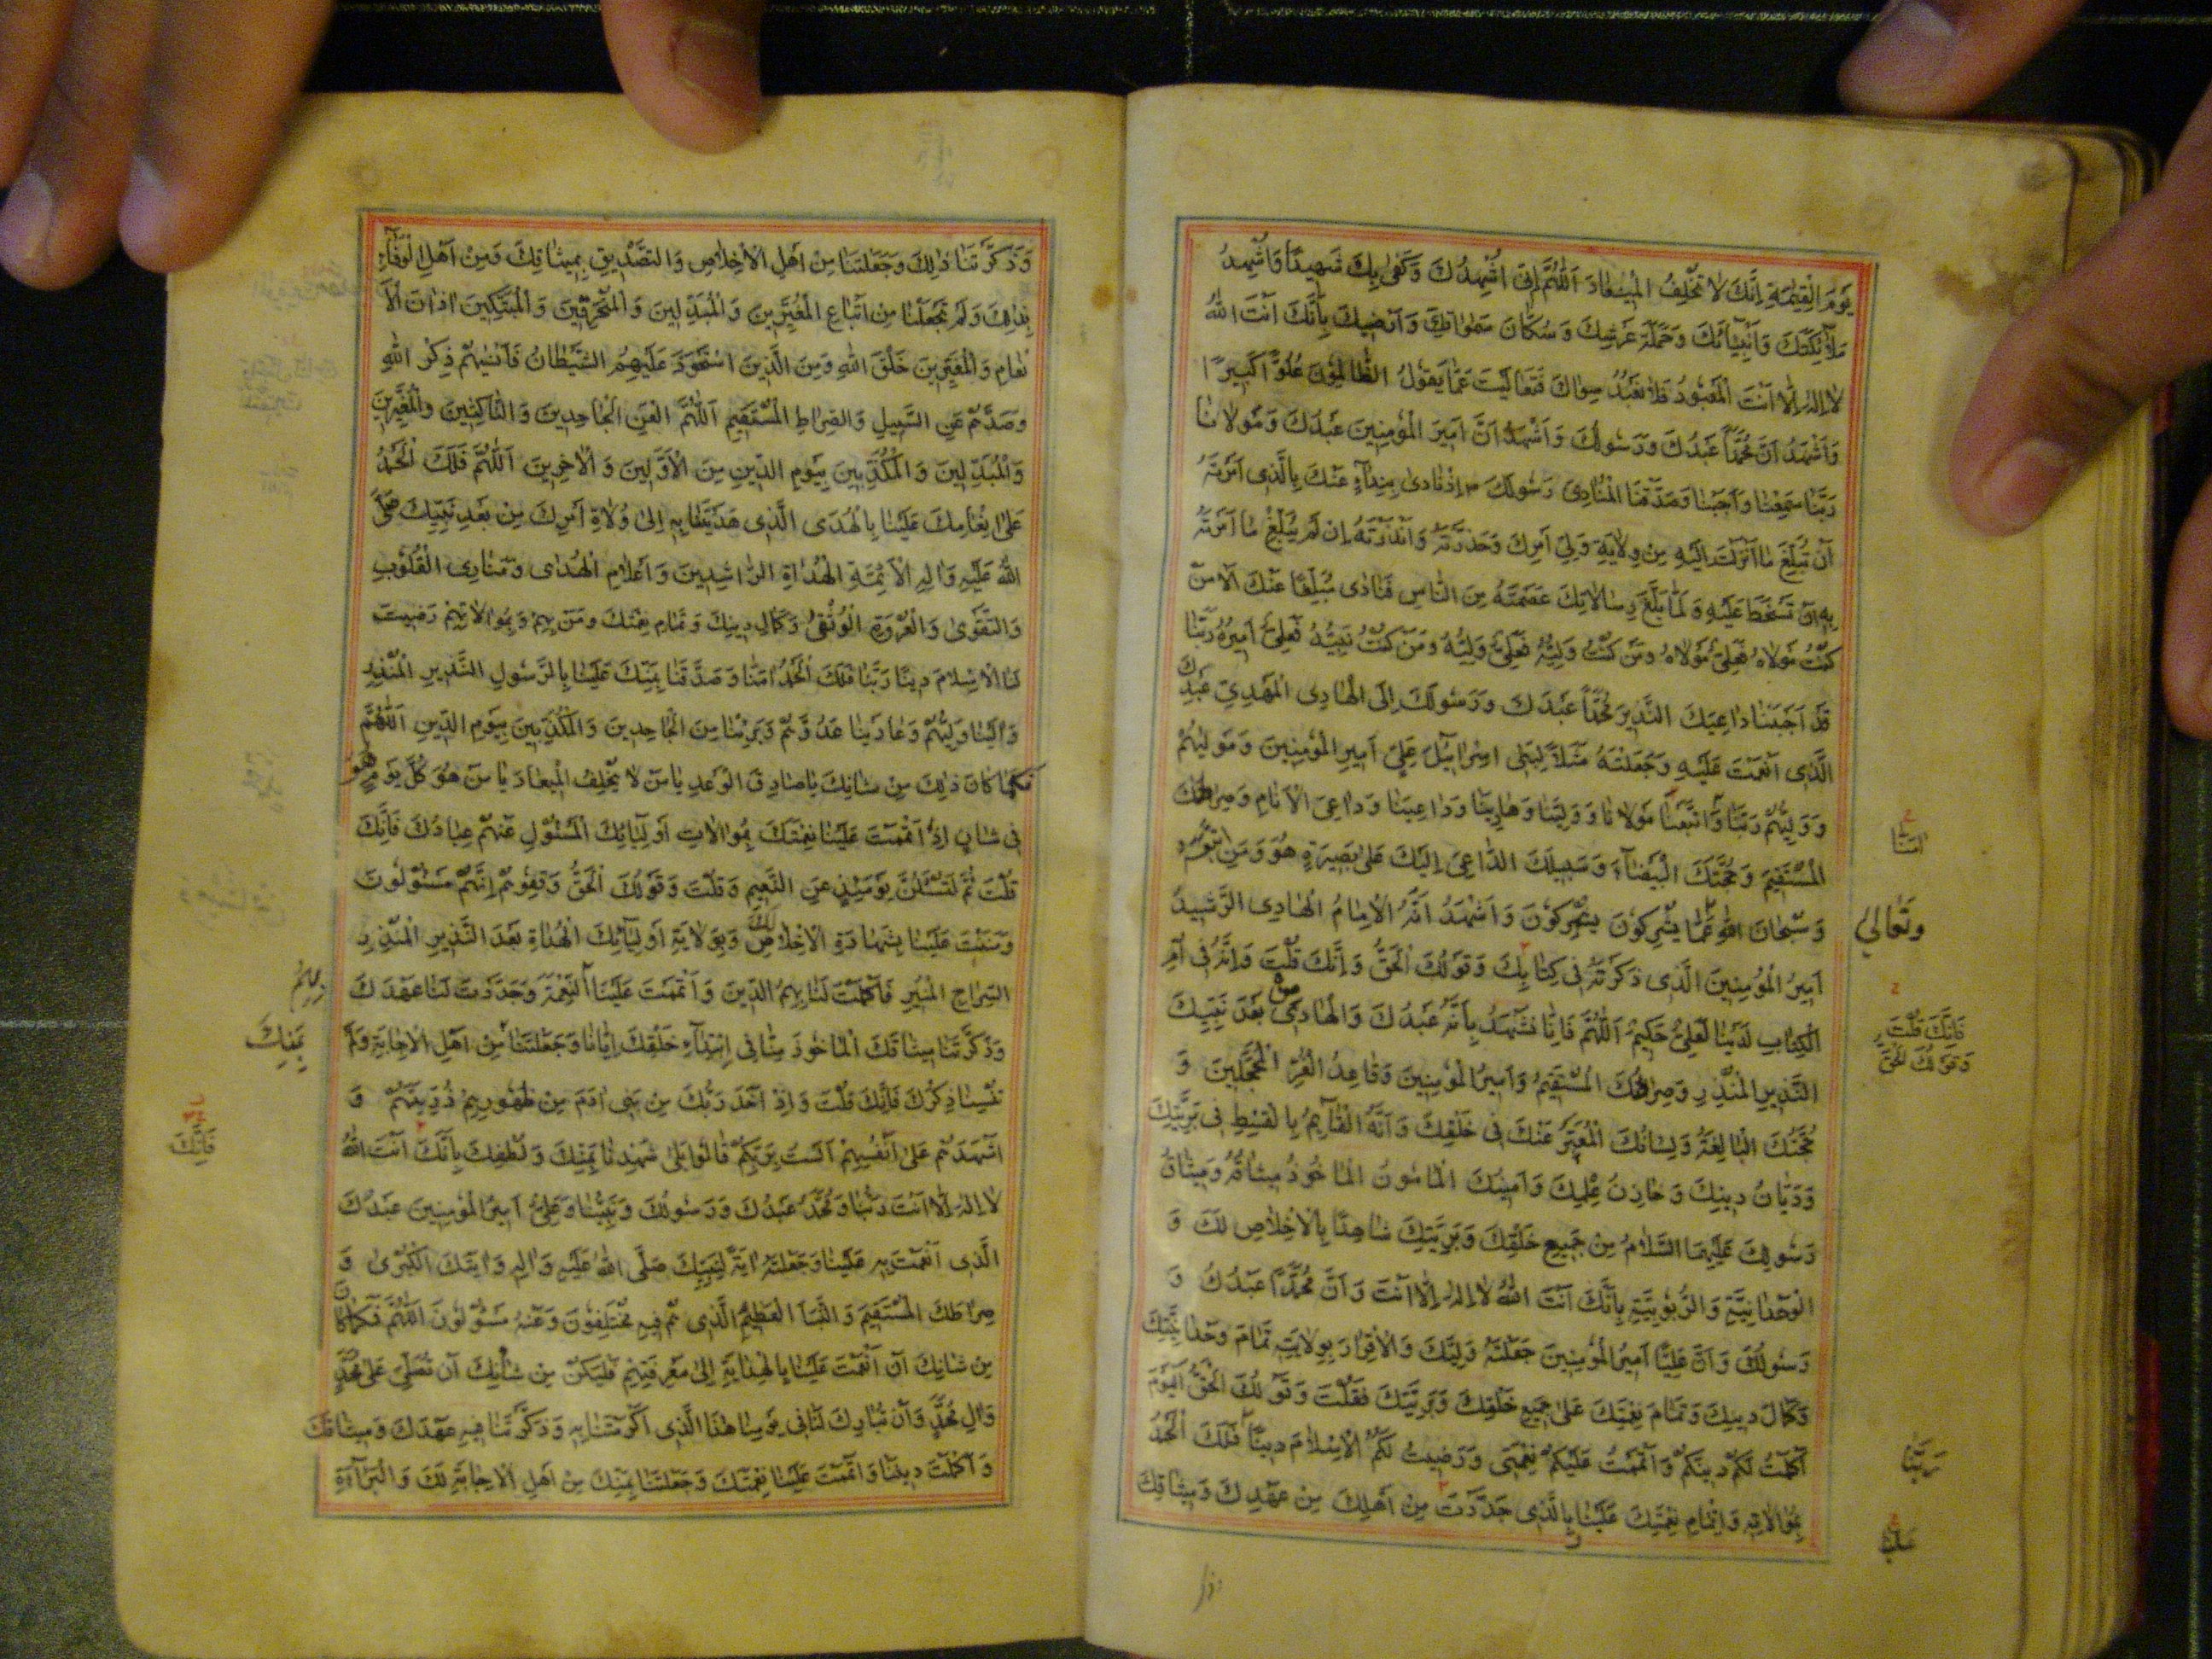 يَوْمَ الْقِيٰمَةِ اِنَّكَ لَا تُخْلِفُ الْمِيعَادَ اَللّٰهُمَّ اِنّى اُشْهِدُكَ وَكَفىٰ بِكَ شَهِيدًا وَاُشْهِدُ
مَلٰٓئِكَتَكَ وَاَنْبِيَآئَكَ وَحَمَلَةَ عَرْشِكَ وَسُكَّانَ سَمٰوَاتِكَ وَاَرَضِيكَ بِاَنَّكَ اَنْتَ اللّٰهُ
لَا اِلٰهَ اِلَّا اَنْتَ الْمَعْبُودُ فَلَا نَعْبُدُ سِوَاكَ فَتَعَالَيْتَ عَمَّا يَقُولُ الظَّالِمُونَ عُلُوًّا كَبِيرًا
وَاَشْهَدُ اَنَّ مُحَمَّدًا عَبْدُكَ وَرَسُولُكَ وَاَشْهَدُ اَنَّ اَمِيرَ الْمُؤْمِنِينَ عَبْدُكَ وَمَوْلَانَا
رَبَّنَا سَمِعْنَا وَاَجَبْنَا وَصَدَّقْنَا الْمُنَادِى رَسُولَكَ اِذْ نَادىٰ بِنِدَآءٍ عَنْكَ بِالَّذِى اَمَرْتَهُ
اَنْ يُبَلِّغَ مَا اَنْزَلْتَ اِلَيْهِ مِنْ وِلَايَةِ وَلِىِّ اَمْرِكَ وَحَذَّرْتَهُ وَاَنْذَرْتَهُ اِنْ لَمْ يُبَلِّغْ مَا اَمَرْتَهُ
بِهِ اَنْ تَسْخَطَ عَلَيْهِ وَلَمَّا بَلَّغَ رِسَالَاتِكَ عَصَمْتَهُ مِنَ النَّاسِ فَنَادىٰ مُبَلِّغًا عَنْكَ اَلَا مَنْ
كُنْتُ مَوْلَاهُ فَعَلِىٌّ مَوْلَاهُ وَمَنْ كُنْتُ وَلِيَّهُ فَعَلِىٌّ وَلِيُّهُ وَمَنْ كُنْتُ نَبِيَّهُ فَعَلِىٌّ اَمِيرُهُ رَبَّنَا
قَدْ اَجَبْنَا دَاعِيَكَ النَّذِيرَ مُحَمَّدًا عَبْدَكَ وَرَسُولَكَ اِلَى الْهَادِى الْمَهْدِىِّ عَبْدِكَ
الَّذِى اَنْعَمْتَ عَلَيْهِ وَجَعَلْتَهُ مَثَلًا لِبَنِى اِسْرَآئِيلَ عَلِىٍّ اَمِيرِ الْمُؤْمِنِينَ وَمَوْلٰيهُمْ
وَوَلِيُّهُمْ رَبَّنَا وَاتَّبَعْنَا مَوْلَانَا وَوَلِيَّنَا وَهَادِيَنَا وَدَاعِيَنَا وَدَاعِىَ الْاَنَامِ وَصِرَاطَكَ
الْمُسْتَقِيمَ وَحُجَّتَكَ الْبَيْضَآءَ وَسَبِيلَكَ الدَّاعِىَ اِلَيْكَ عَلىٰ بَصِيرَةٍ هُوَ وَمَنِ اتَّبَعَهُ
وَسُبْحَانَ اللّٰهِ عَمَّا يُشْرِكُونَ وَاَشْهَدُ اَنَّهُ الْاِمَامُ الْهَادِى الرَّشِيدُ
اَمِيرُ الْمُؤْمِنِينَ الَّذِى ذَكَرْتَهُ فِى كِتَابِكَ وَقَوْلُكَ الْحَقُّ وَاِنَّكَ قُلْتَ وَاِنَّهُ فِى اُمِّ
الْكِتَابِ لَدَيْنَا لَعَلِىٌّ حَكِيمٌ اَللّٰهُمَّ فَاِنَّا نَشْهَدُ بِاَنَّهُ عَبْدُكَ وَالْهَادِى مِنْ بَعْدِ نَبِيِّكَ
النَّذِيرِ الْمُنْذِرِ وَصِرَاطُكَ الْمُسْتَقِيمُ وَاَمِيرُ الْمُؤْمِنِينَ وَقَاعِدُ الْغُرِّ الْمُحَجَّلِينَ وَ
حُجَّتُكَ الْبَالِغَةُ وَلِسَانُكَ الْمُعَبِّرُ عَنْكَ فِى خَلْقِكَ وَاَنَّهُ الْقَآئِمُ بِالْقِسْطِ فِى بَرِيَّتِكَ
وَدَيَّانُ دِينِكَ وَخَازِنُ عِلْمِكَ وَاَمِينُكَ الْمَامُونُ الْمَاخُوذُ مِيثَاقُهُ وَمِيثَاقُ
رَسُولِكَ عَلَيْهِمَا السَّلَامُ مِنْ جَمِيعِ خَلْقِكَ وَبَرِيَّتِكَ شَاهِدًا بِالْاِخْلَاصِ لَكَ وَ
الْوَحْدَانِيَّةِ وَالرُّبُوبِيَّةِ بِاَنَّكَ اَنْتَ اللّٰهُ لَا اِلٰهَ اِلَّا اَنْتَ وَاَنَّ مُحَمَّدًا عَبْدُكَ وَ
رَسُولُكَ وَاَنَّ عَلِيًّا اَمِيرُ الْمُؤْمِنِينَ جَعَلْتَهُ وَلِيَّكَ وَالْاِقْرَارَ بِوِلَايَتِهِ تَمَامَ وَحْدَانِيَّتِكَ
وَكَمَالَ دِينِكَ وَتَمَامَ نِعْمَتِكَ عَلىٰ جَمِيعِ خَلْقِكَ وَبَرِيَّتِكَ فَقُلْتَ وَقَوْلُكَ الْحَقُّ اَلْيَوْمَ
اَكْمَلْتُ لَكُمْ دِينَكُمْ وَاَتْمَمْتُ عَلَيْكُمْ نِعْمَتِى وَرَضِيتُ لَكُمُ الْاِسْلَامَ دِينًا فَلَكَ الْحَمْدُ
بِمُوَالَاتِهِ وَاِتْمَامِ نِعْمَتِكَ عَلَيْنَا بِالَّذِى جَدَّدْتَ مِنْ اَهْلِكَ مِنْ عَهْدِكَ وَمِيثَاقِكَ
اٰمَنَّا
وَتَعَالىٰ
فَاِنَّكَ قُلْتَ
وَقَوْلُكَ الْحَقُّ
رَبَّنَا
وَذَكَّرْتَنَا ذٰلِكَ وَجَعَلْتَنَا مِنْ اَهْلِ الْاِخْلَاصِ وَالتَّصْدِيقِ بِمِيثَاقِكَ وَمِنْ اَهْلِ الْوَفَآءِ
بِذٰلِكَ وَلَمْ تَجْعَلْنَا مِنْ اَتْبَاعِ الْمُغَيِّرِينَ وَالْمُبَدِّلِينَ وَالْمُنْحَرِفِينَ وَالْمُبَتِّكِينَ اٰذَانَ الْاَ
نْعَامِ وَالْمُغَيِّرِينَ خَلْقَ اللّٰهِ وَمِنَ الَّذِينَ اسْتَحْوَذَ عَلَيْهِمُ الشَّيْطَانُ فَاَنْسٰيهُمْ ذِكْرَ اللّٰهِ
وَصَدَّهُمْ عَنِ السَّبِيلِ وَالصِّرَاطِ الْمُسْتَقِيمِ اَللّٰهُمَّ الْعَنِ الْجَاحِدِينَ وَالنَّاكِثِينَ وَالْمُغَيِّرِينَ
وَالْمُبَدِّلِينَ وَالْمُكَذِّبِينَ بِيَوْمِ الدِّينِ مِنَ الْاَوَّلِينَ وَالْاٰخِرِينَ اَللّٰهُمَّ فَلَكَ الْحَمْدُ
عَلىٰ اِنْعَامِكَ عَلَيْنَا بِالْهُدَى الَّذِى هَدَيْتَنَا بِهِ اِلىٰ وُلَاةِ اَمْرِكَ مِنْ بَعْدِ نَبِيِّكَ صَلَّى
اللّٰهُ عَلَيْهِ وَاٰلِهِ الْاَئِمَّةِ الْهُدَاةِ الرَّاشِدِينَ وَاَعْلَامِ الْهُدىٰ وَمَنَارِى الْقُلُوبِ
وَالتَّقْوىٰ وَالْعُرْوَةِ الْوُثْقىٰ وَكَمَالِ دِينِكَ وَتَمَامِ نِعْمَتِكَ وَمَنْ بِهِمْ وَبِمُوَالَاتِهِمْ رَضِيتَ
لَنَا الْاِسْلَامَ دِينًا رَبَّنَا فَلَكَ الْحَمْدُ اٰمَنَّا وَصَدَّقْنَا بِمَنِّكَ عَلَيْنَا بِالرَّسُولِ النَّذِيرِ الْمُنْذِرِ
وَالَيْنَا وَلِيَّهُمْ وَعَادَيْنَا عَدُوَّهُمْ وَبَرِئْنَا مِنَ الْجَاحِدِينَ وَالْمُكَذِّبِينَ بِيَوْمِ الدِّينِ اَللّٰهُمَّ
فَكَمَا كَانَ ذٰلِكَ مِنْ شَانِكَ يَا صَادِقَ الْوَعْدِ يَا مَنْ لَا يُخْلِفُ الْمِيعَادَ يَا مَنْ هُوَ كُلَّ يَوْمٍ هُوَ
فِى شَانٍ اِذْ اَتْمَمْتَ عَلَيْنَا نِعْمَتَكَ بِمُوَالَاتِ اَوْلِيَآئِكَ الْمَسْئُولِ عَنْهُمْ عِبَادُكَ فَاِنَّكَ
قُلْتَ ثُمَّ لَتُسْئَلُنَّ يَوْمَئِذٍ عَنِ النَّعِيمِ وَقُلْتَ وَقَوْلُكَ الْحَقُّ وَقِفُوهُمْ اِنَّهُمْ مَسْئُولُونَ
وَمَنَنْتَ عَلَيْنَا بِشَهَادَةِ الْاِخْلَاصِ وَبِوِلَايَةِ اَوْلِيَآئِكَ الْهُدَاةِ بَعْدَ النَّذِيرِ الْمُنْذِرِ
السِّرَاجِ الْمُنِيرِ فَاَكْمَلْتَ لَنَا بِهِمُ الدِّينَ وَاَتْمَمْتَ عَلَيْنَا النِّعْمَةَ وَجَدَّدْتَ لَنَا عَهْدَكَ
وَذَكَّرْتَنَا مِيثَاقَكَ الْمَاخُوذَ مِنَّا فِى ابْتِدَآءِ خَلْقِكَ اِيَّانَا وَجَعَلْتَنَا مِنْ اَهْلِ الْاِجَابَةِ وَلَمْ
تُنْسِنَا ذِكْرَكَ فَاِنَّكَ قُلْتَ وَاِذْ اَخَذَ رَبُّكَ مِنْ بَنِى اٰدَمَ مِنْ ظُهُورِهِمْ ذُرِّيَّتَهُمْ وَ
اَشْهَدَهُمْ عَلىٰ اَنْفُسِهِمْ اَلَسْتُ بِرَبِّكُمْ قَالُوا بَلىٰ شَهِدْنَا بِمَنِّكَ وَلُطْفِكَ بِاَنَّكَ اَنْتَ اللّٰهُ
لَا اِلٰهَ اِلَّا اَنْتَ رَبُّنَا وَمُحَمَّدٌ عَبْدُكَ وَرَسُولُكَ وَنَبِيُّنَا وَعَلِىٌّ اَمِيرُ الْمُؤْمِنِينَ عَبْدُكَ
الَّذِى اَنْعَمْتَ بِهِ عَلَيْنَا وَجَعَلْتَهُ اٰيَةً لِنَبِيِّكَ صَلَّى اللّٰهُ عَلَيْهِ وَاٰلِهِ وَاٰيَتَكَ الْكُبْرىٰ وَ
صِرَاطَكَ الْمُسْتَقِيمَ وَالنَّبَاَ الْعَظِيمَ الَّذِى هُمْ فِيهِ مُخْتَلِفُونَ وَعَنْهُ مَسْئُولُونَ اَللّٰهُمَّ فَكَمَا كَانَ
مِنْ شَانِكَ اَنْ اَنْعَمْتَ عَلَيْنَا بِالْهِدَايَةِ اِلىٰ مَعْرِفَتِهِمْ فَلْيَكُنْ مِنْ شَانِكَ اَنْ تُصَلِّىَ عَلىٰ مُحَمَّدٍ
وَاٰلِ مُحَمَّدٍ وَاَنْ تُبَارِكَ لَنَا فِى يَوْمِنَا هٰذَا الَّذِى اَكْرَمْتَنَا بِهِ وَذَكَّرْتَنَا فِيهِ عَهْدَكَ وَمِيثَاقَكَ
وَاَكْمَلْتَ دِينَنَا وَاَتْمَمْتَ عَلَيْنَا نِعْمَتَكَ وَجَعَلْتَنَا بِمَنِّكَ مِنْ اَهْلِ الْاِجَابَةِ لَكَ وَالْبَرَآءَةِ
بِهِمُ
بِمَنِّكَ
فَاِنَّكَ